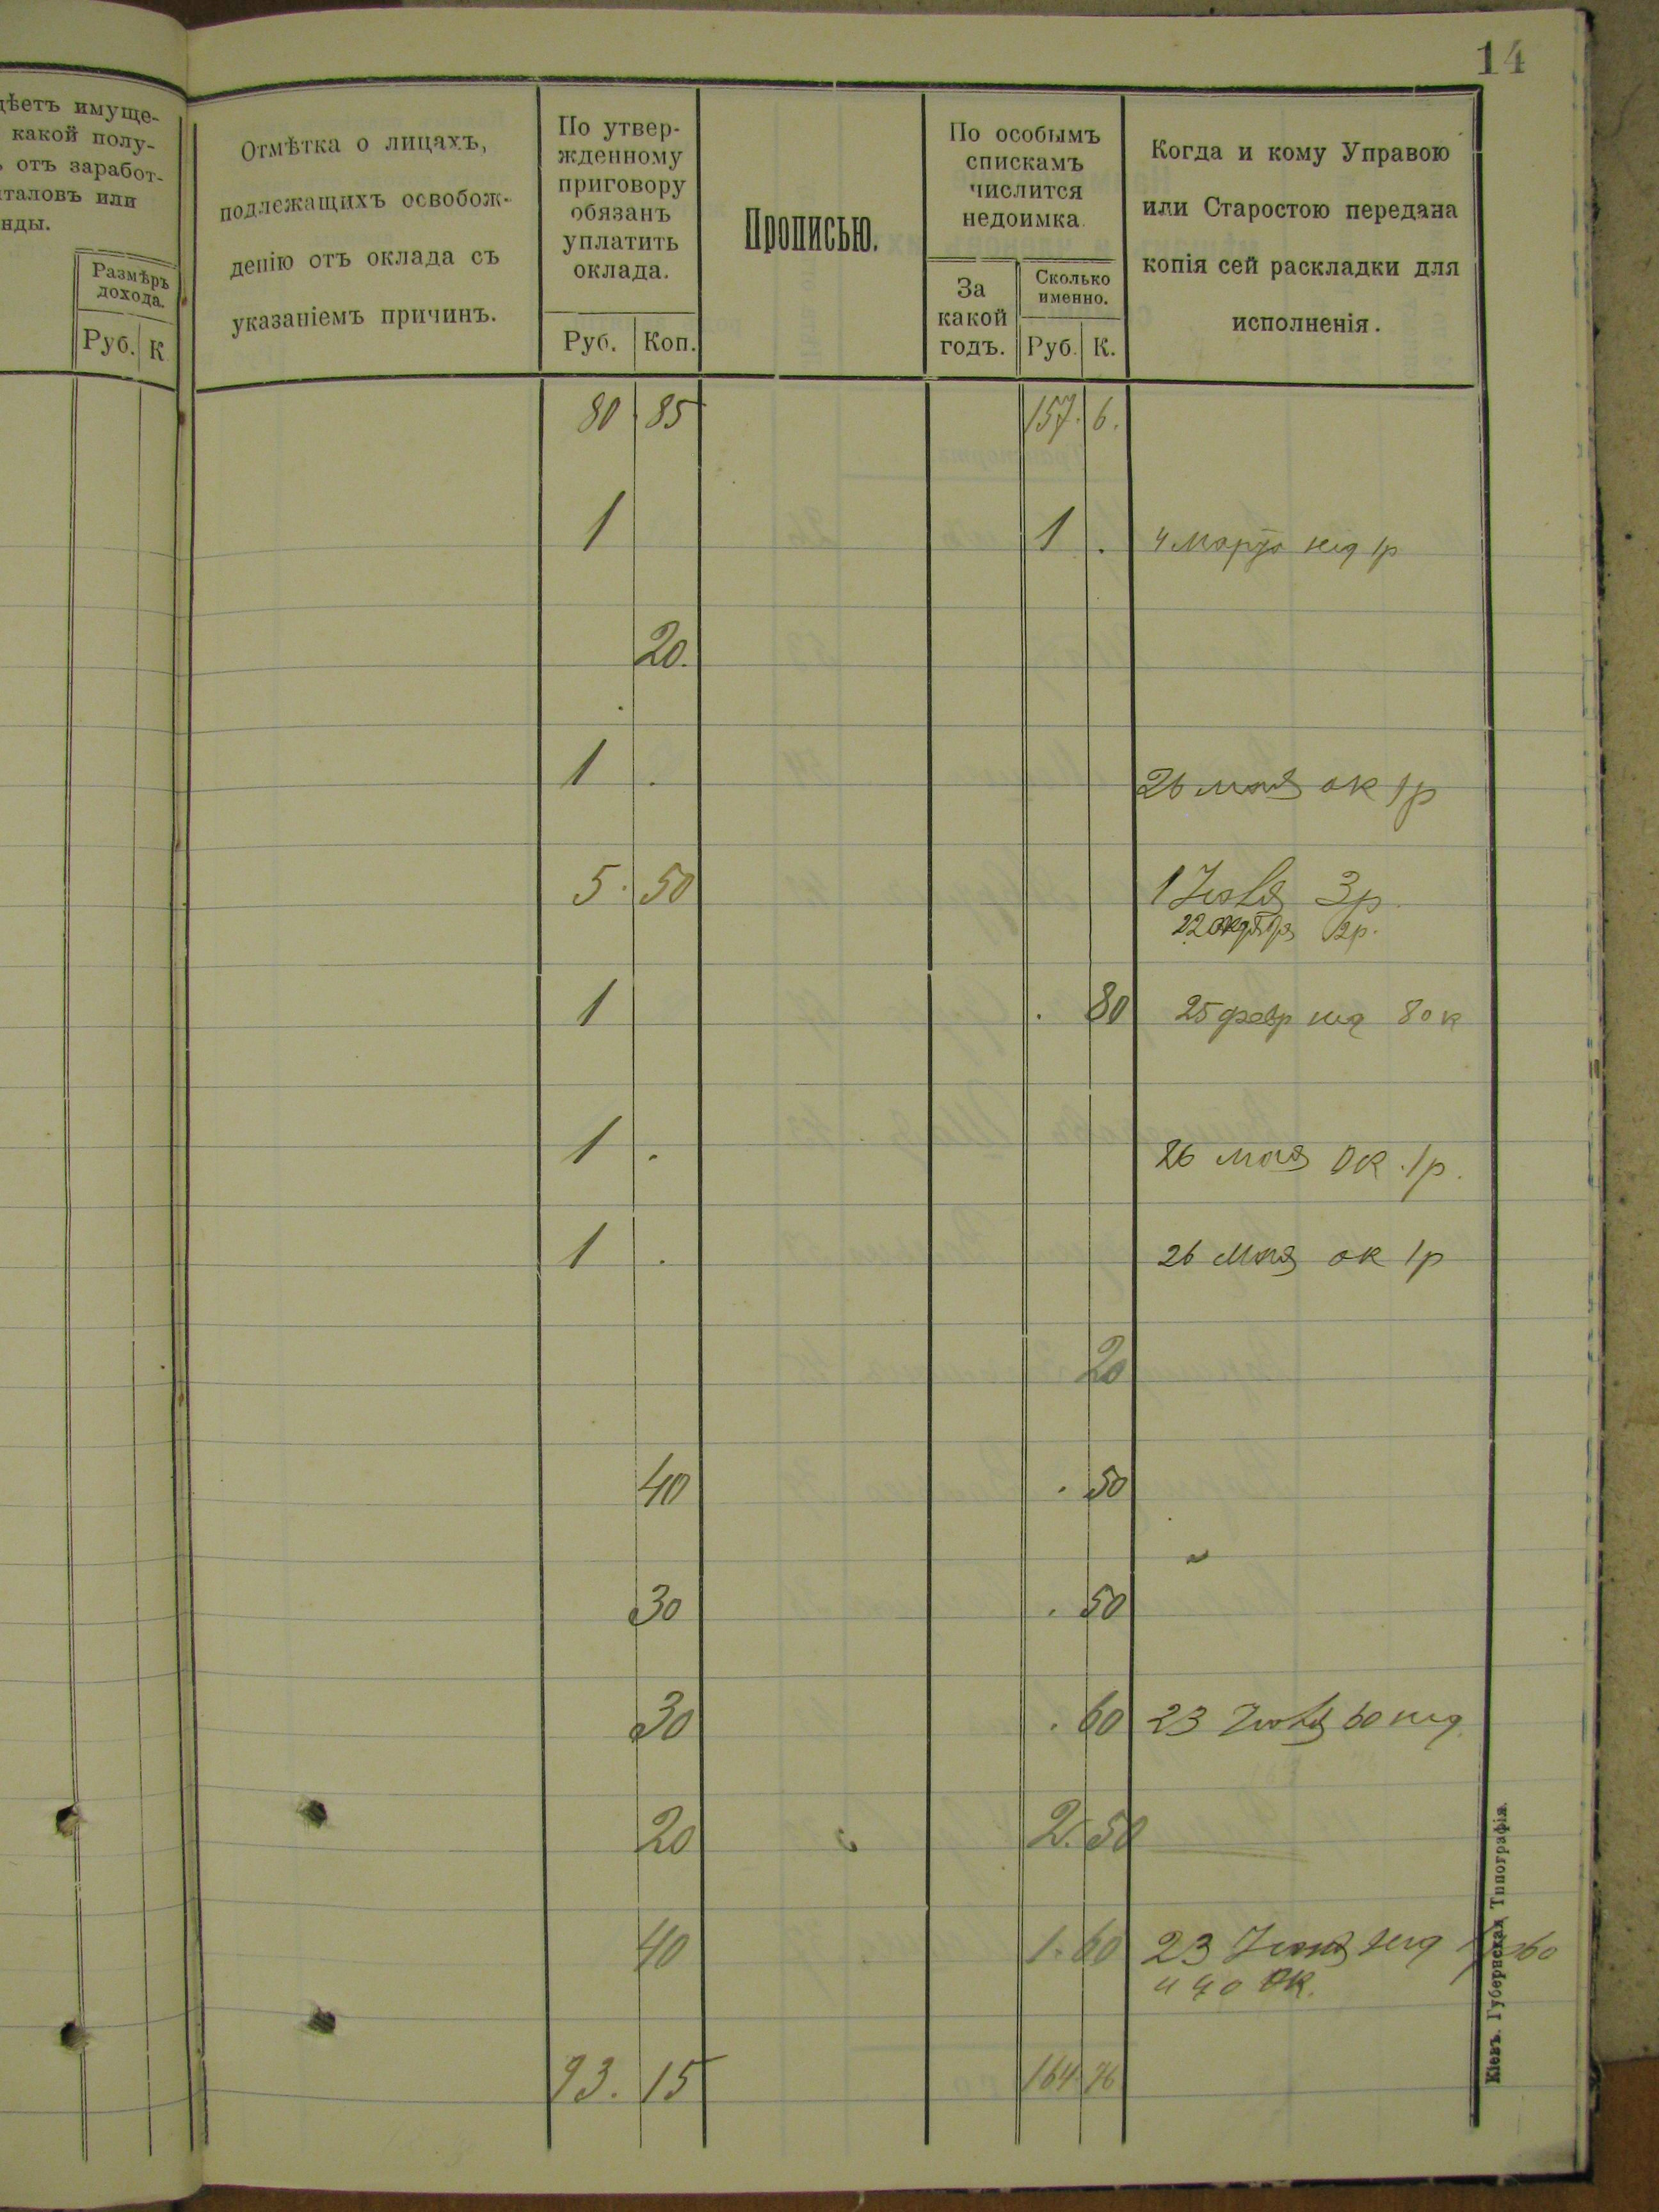 14
дѣетъ имуще-
какой полу-
отъ заработ-
италовъ или
нды.
Размѣръ дохода.
Руб. К
Отмѣтка о лицахъ,
подлежащихъ освобож-
денію отъ оклада съ
указаніемъ причинъ.
По утвер-
жденному
приговору
обязанъ
уплатить
оклада.
Руб. Коп.
Прописью.
По особымъ
спискамъ
числится
недоимка.
За
какой
годъ.
Сколько
именно.
Руб. К.
Когда и кому Управою
или Старостою передана
копія сей раскладки для
исполненія.
80 85 157. 6.
1 1 . 4 Марта нед 1р
20.
1 . 26 мая ок 1р
5. 50 1 Іюля 3р.
22 октября 2р.
1 . 80 25 февр нед 80 к
1 . 26 мая ок. 1р.
1 . 26 Мая ок 1р
20
40 . 50
30 . 50
30 . 60 23 Іюля 60 нед
20 2. 50
40 1. 60 23 нед 60
и 40 ок.
93. 15 164 76
Кіевъ. Губернская Типографія.